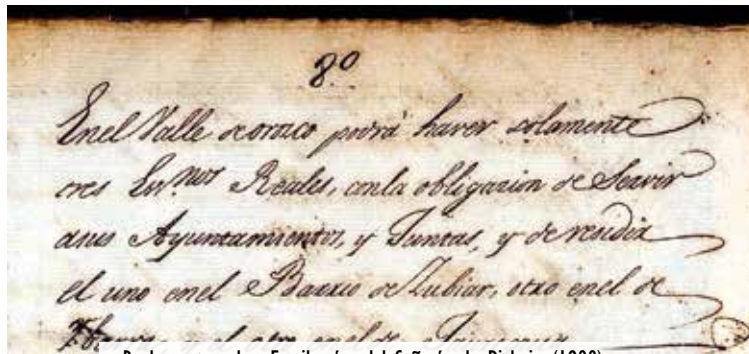 8º
En el Valle de orozco podrá haver solamente
tres Esn.nos Reales, con la obligacion de Servir
a sus Ayuntamientos, y Juntas, y de residir
el uno en el Barrio de Zubiar, otro en el de
y el otro en el de